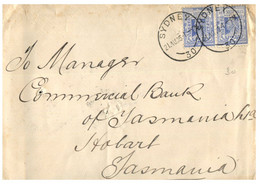 SYDNEY
30
SYDNEY
30
To Manager
Commercial Bank
of Tasmania Ltd
Hobart
Tasmania